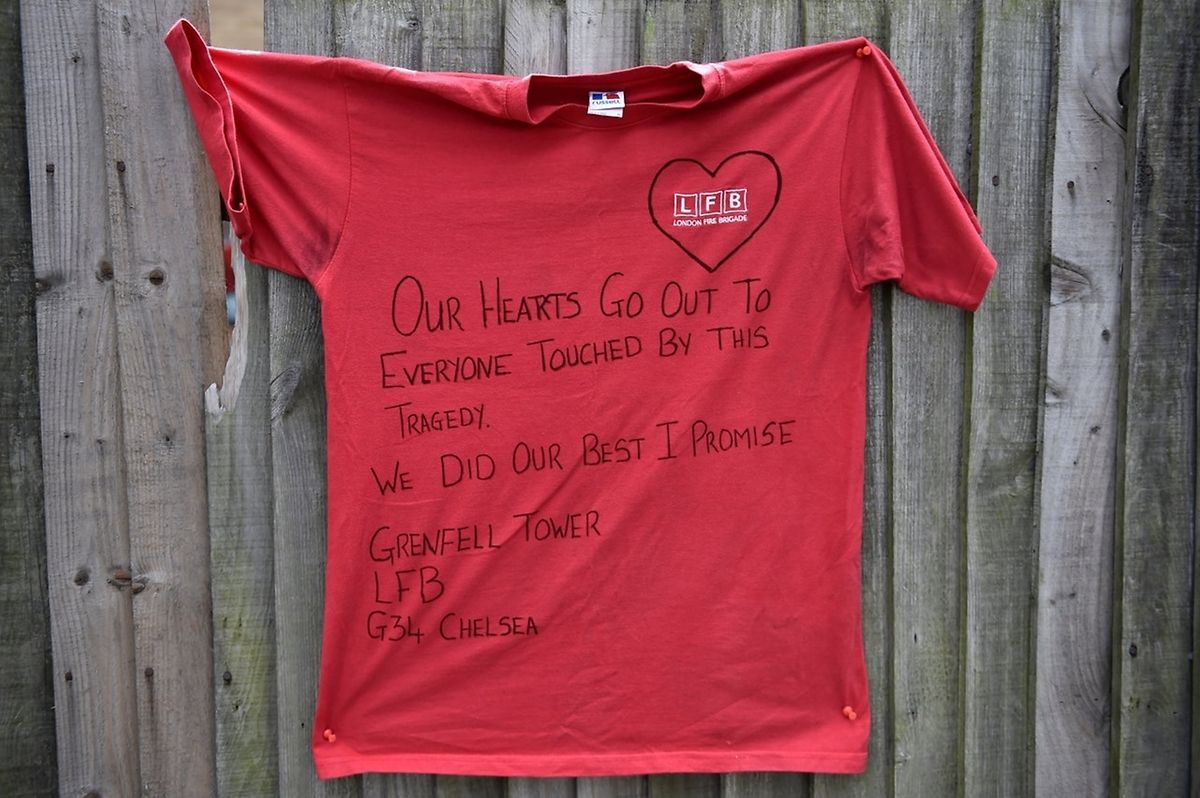 russell
L F B
LONDON FIRE BRIGADE
OUR HEARTS GO OUT TO
EVERYONE TOUCHED BY THIS
TRAGEDY.
WE DID OUR BEST I PROMISE
GRENFELL TOWER
LFB
G34 CHELSEA